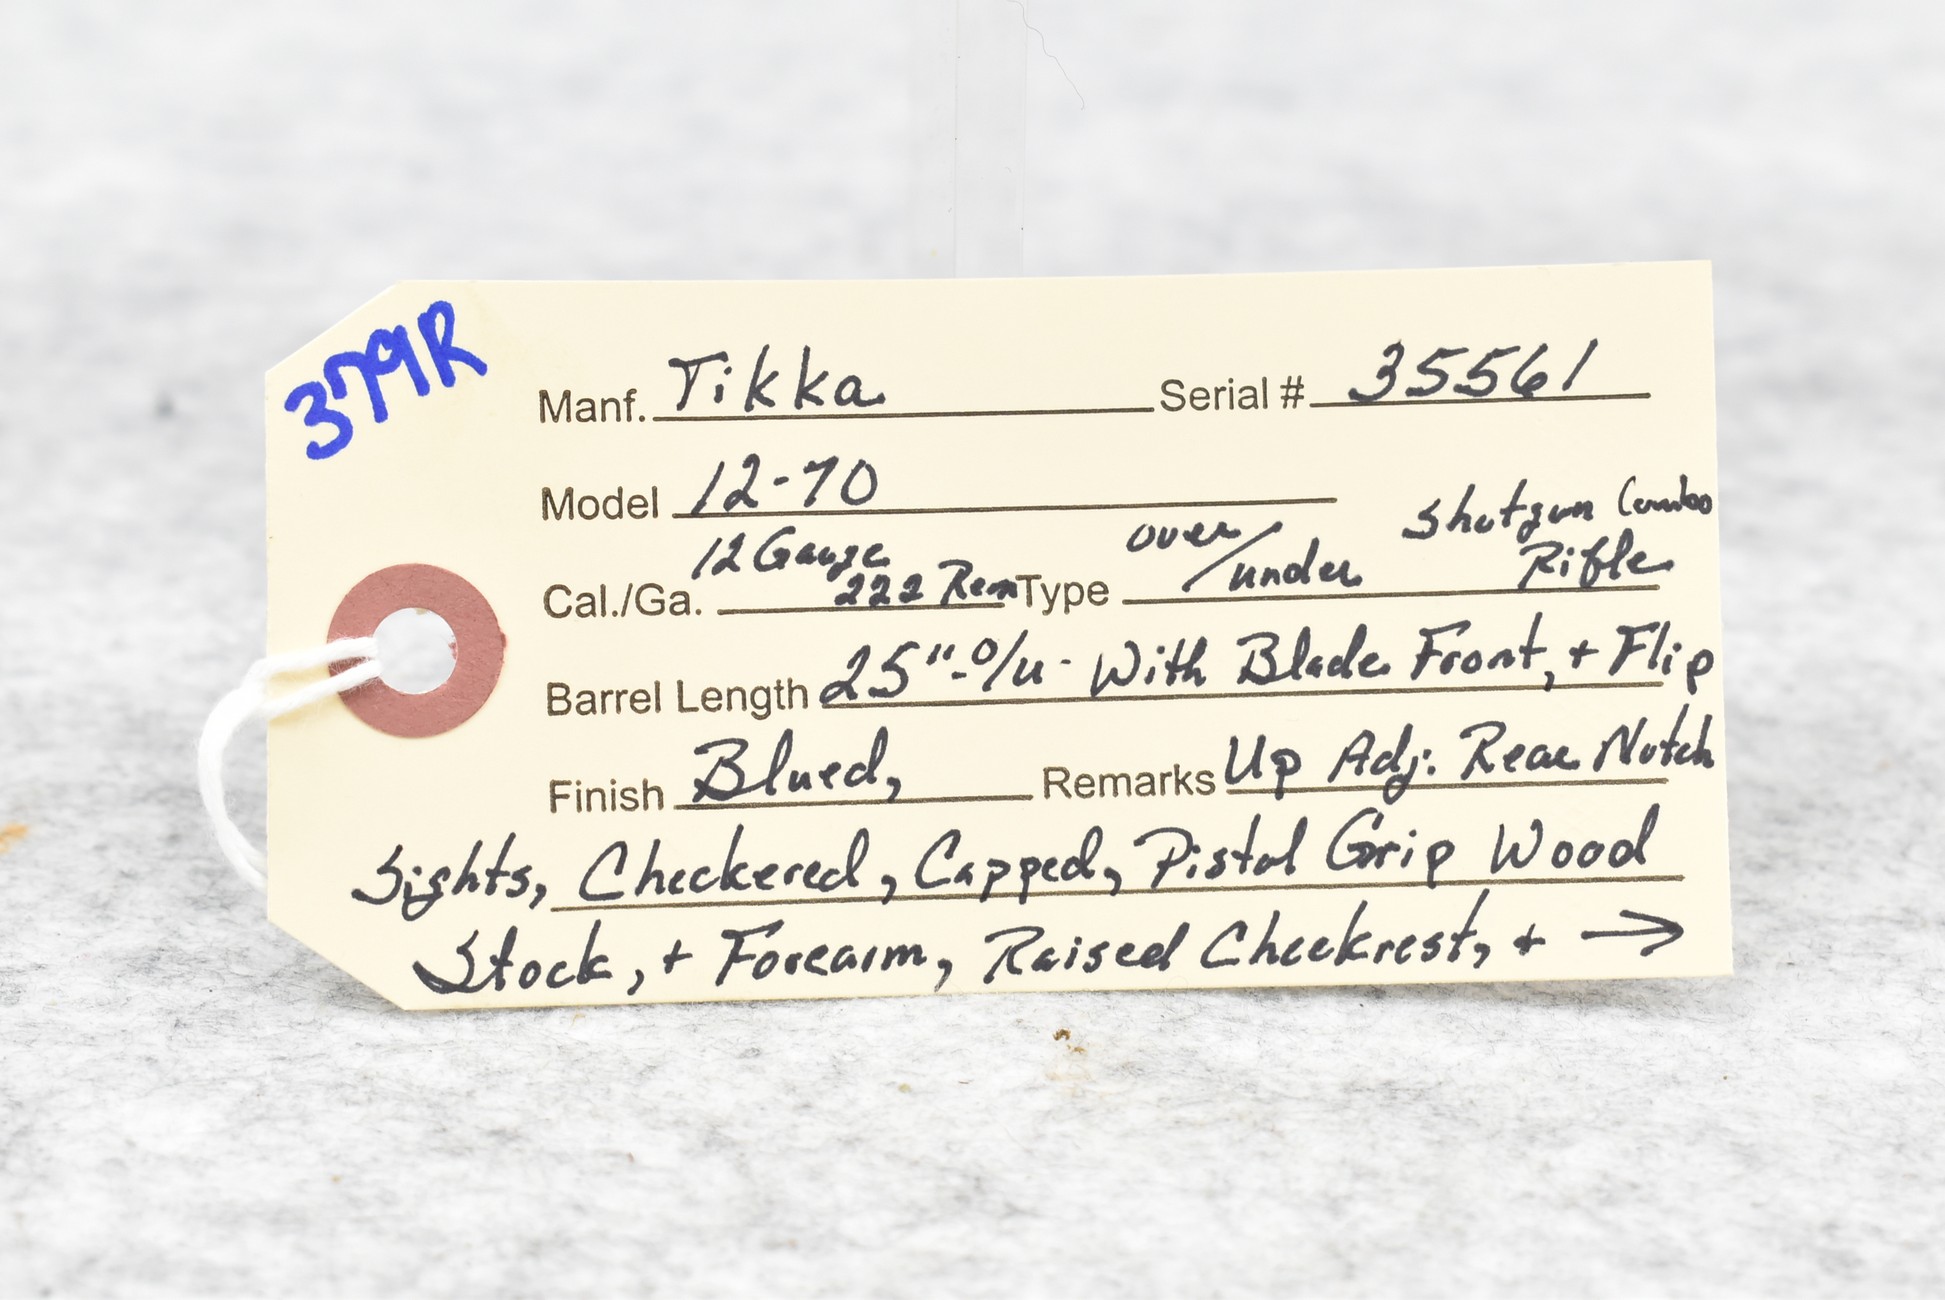 379R
Manf. Tikka Serial # 35561
Model 12-70
Cal./Ga. 12 Gauge 222 Rem Type over/under Shotgun Combo Rifle
Barrel Length 25"-O/U- With Blade Front, + Flip
Finish Blued, Remarks Up Adj. Rear Notch
Sights, Checkered, Capped, Pistol Grip Wood
Stock, + Forearm, Raised Cheekrest, + →